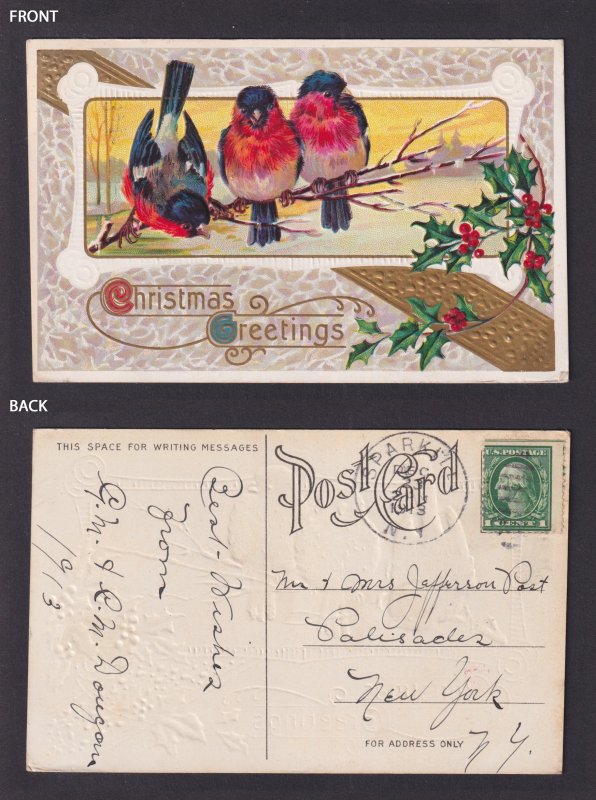 FRONT
Christmas
Greetings
BACK
THIS SPACE FOR WRITING MESSAGES
Post Card
SPARKILL
DEC
1913
N.Y.
U.S. POSTAGE
1 CENT 1
Best-Wishes
from
G. M. & C. M. Dougan
1913
Mr & Mrs Jefferson Post
Palisades
New York
N Y.
FOR ADDRESS ONLY